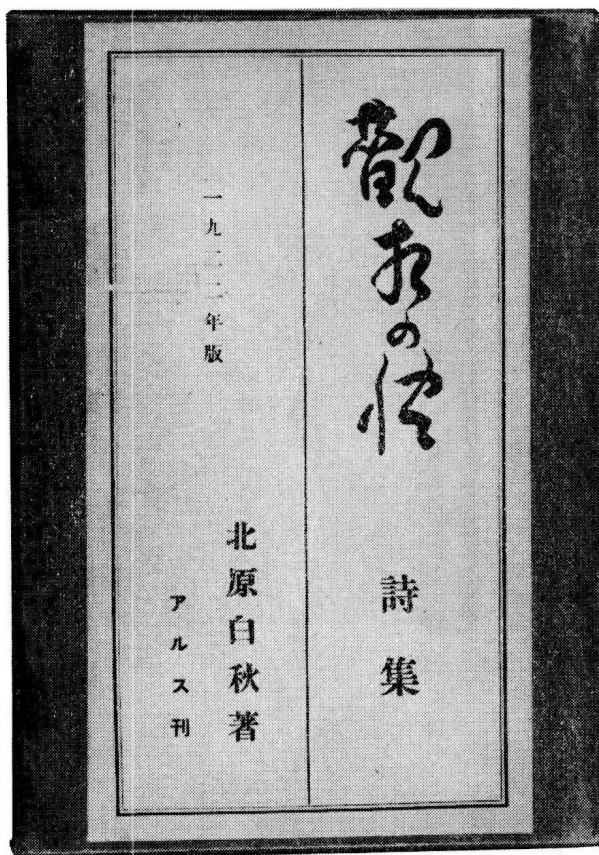 觀相の秋
詩集
一九二二年版
北原白秋著
アルス刊